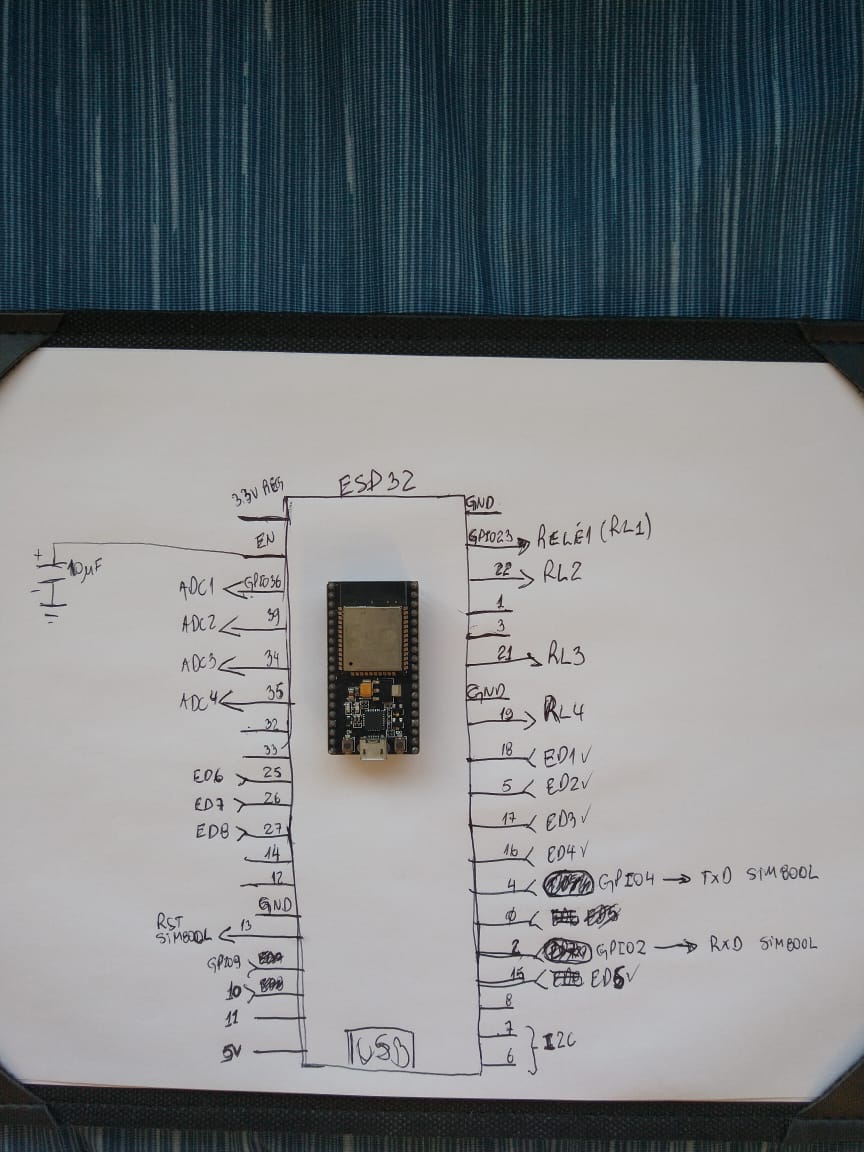 ESD32
3.3V REG
EN
+
10µF
-
ADC1 GPIO36
ADC2 39
ADC3 34
ADC4 35
32
33
ED6 25
ED7 26
ED8 27
14
12
GND
RST
SIM800L 13
GPIO9
10
11
5V
USB
GND
GPIO23 RELÉ1 (RL1)
22 RL2
1
3
21 RL3
GND
19 RL4
18 ED1√
5 ED2√
17 ED3√
16 ED4√
4 GPIO4 → TXD SIM800L
0
2 GPIO2 → RXD SIM800L
15 ED5√
8
7
6
} I2C